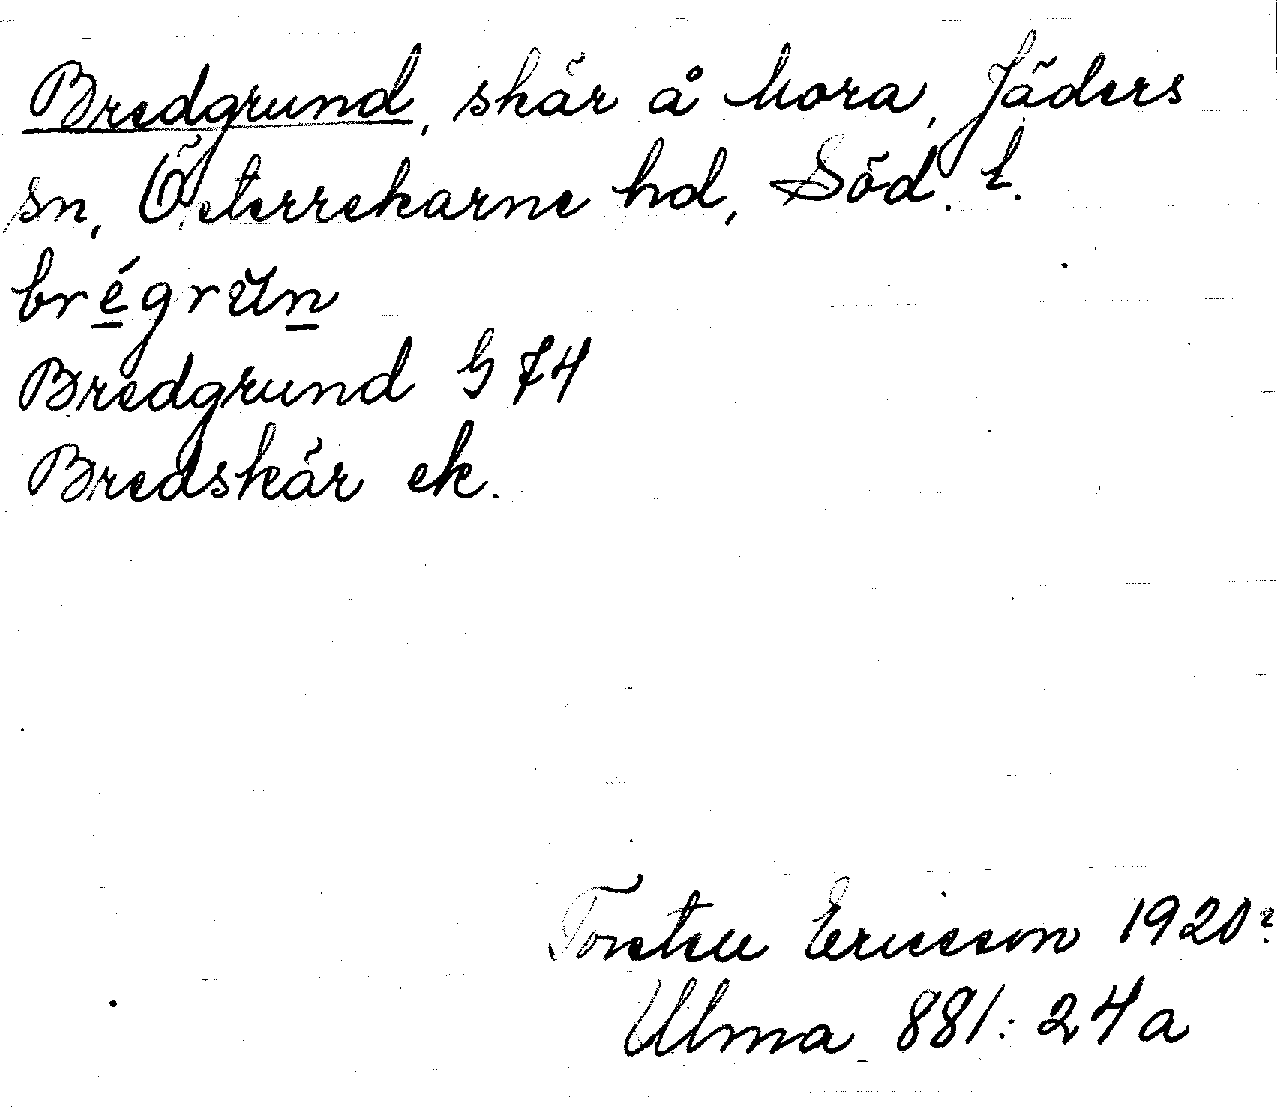 Bredgrund, skär å Mora, Jäders
sn, Österrekarne hd, Söd. l.
brégrŭn
Bredgrund G 74
Bredskär ek.
Torsten Ericsson 1920?
Ulma 881:24a